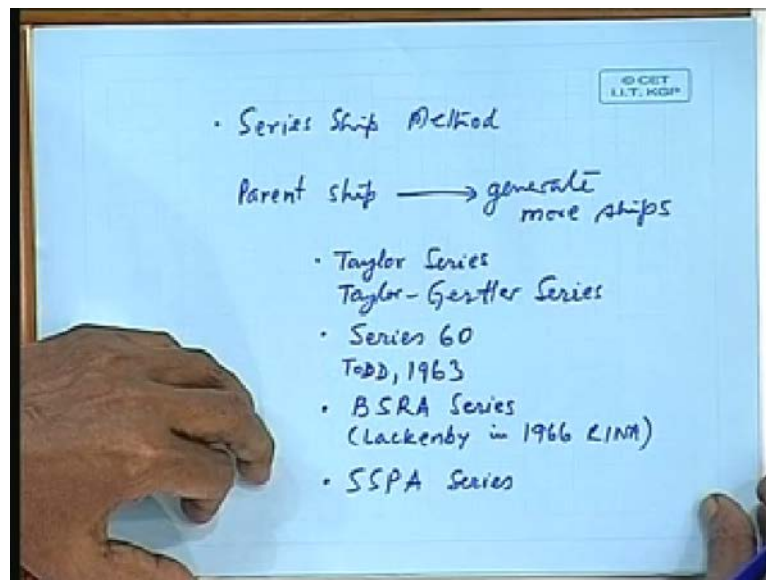 © CET
I.I.T. KGP
• Series Ship Method
Parent ship → generate
more ships
• Taylor Series
Taylor-Gertler Series
• Series 60
TODD, 1963
• BSRA Series
(Lackenby in 1966 RINA)
• SSPA Series